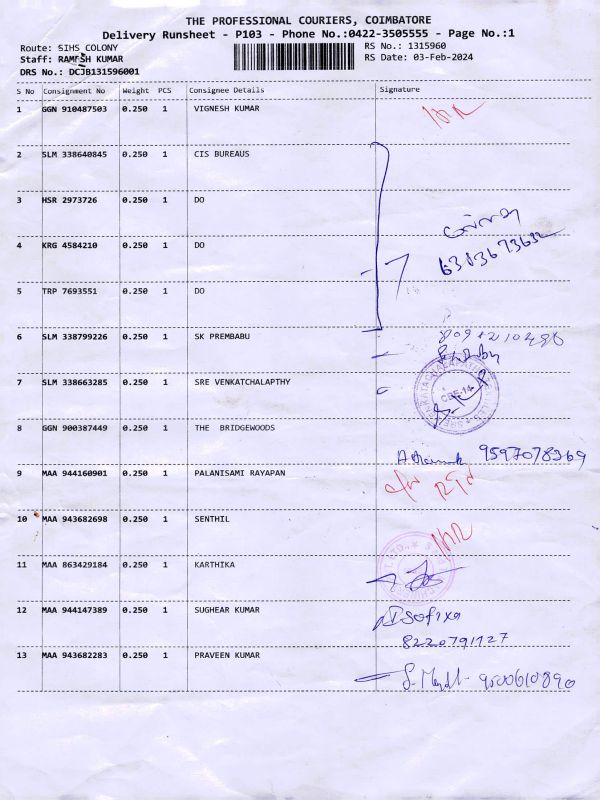 THE PROFESSIONAL COURIERS, COIMBATORE
Delivery Runsheet - P103 - Phone No.:0422-3505555 - Page No.:1
Route: SIHS COLONY
RS No.: 1315960
Staff: RAMESH KUMAR
RS Date: 03-Feb-2024
DRS No.: DCJB131596001
S No Consignment No Weight PCS Consignee Details Signature
1 GGN 910487503 0.250 1 VIGNESH KUMAR
2 SLM 338640845 0.250 1 CIS BUREAUS
3 HSR 2973726 0.250 1 DO
4 KRG 4584210 0.250 1 DO
6383673632
5 TRP 7693551 0.250 1 DO
6 SLM 338799226 0.250 1 SK PREMBABU
7 SLM 338663285 0.250 1 SRE VENKATCHALAPTHY
CBE-14
8 GGN 900387449 0.250 1 THE BRIDGEWOODS
9597078369
9 MAA 944160901 0.250 1 PALANISAMI RAYAPAN
10 MAA 943682698 0.250 1 SENTHIL
11 MAA 863429184 0.250 1 KARTHIKA
12 MAA 944147389 0.250 1 SUGHEAR KUMAR
Sofixa
8220791727
13 MAA 943682283 0.250 1 PRAVEEN KUMAR
9500610890